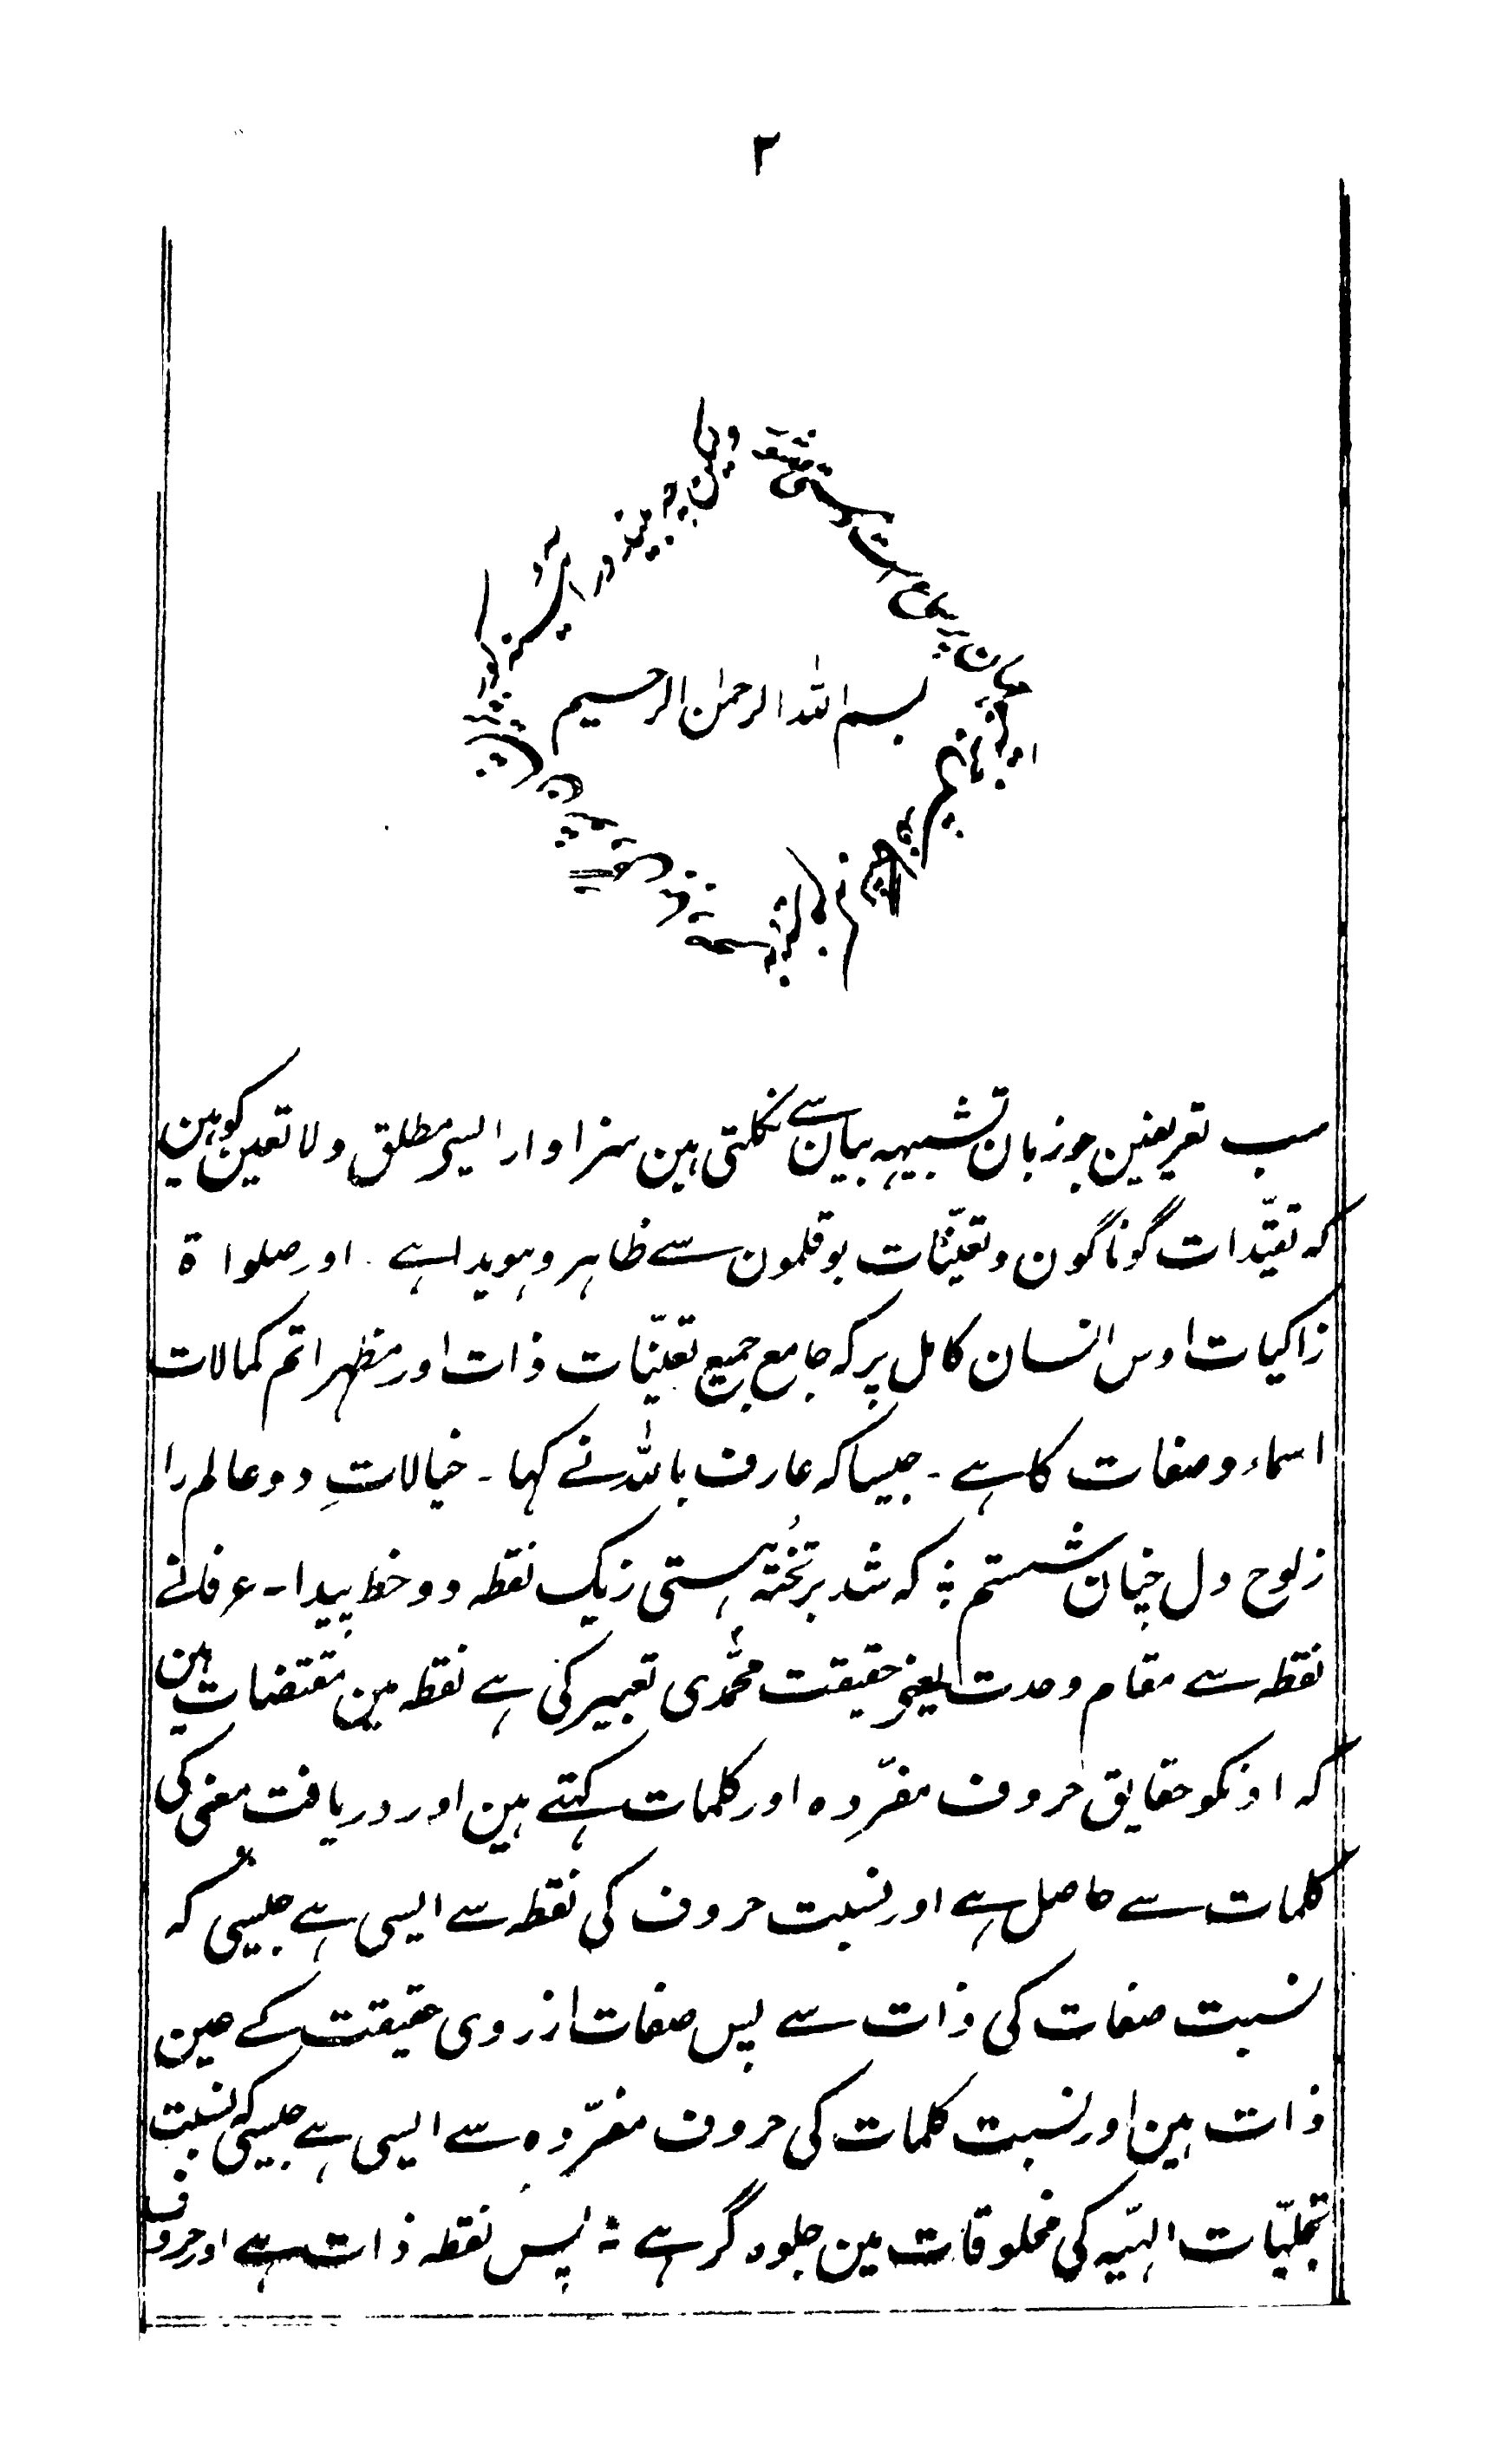 ۲
بسم اللہ الرحمٰن الرحیم
سب تعریفین جو زبان تشبیہہ بیان سے نکلتی ہین سزاوار ایسی مطلق ولا تعین کو ہین
کہ تقیّدات گوناگون و تعیّنات بوقلمون سے ظاہر و ہویدا ہے ۔ اور صلواۃ
زاکیات اوس انسان کامل پر کہ جامع جمیع تعیّنات ذات اور مظہر اتم کمالات
اسماء و صفات کا ہے ۔ جیسا کہ عارف باللہ نے کہا ۔ خیالاتِ دو عالم را
ز لوح دل چنان شستم ؛ کہ شد بر تختہ ہستی ز یک نقطہ دو خط پیدا ۔ عرفا نے
نقطہ سے مقام وحدت یعنی حقیقت محمّدی تعبیر کی ہے نقطہ مین مقتضات ہین
کہ اونکو حقایق حروف مفرّدہ اور کلمات کہتے ہین اور دریافت معنی کی
کلمات سے حاصل ہے اور نسبت حروف کی نقطہ سے ایسی ہے جیسی کہ
نسبت صفات کی ذات سے پس صفات از روی حقیقت کے عین
ذات ہین اور نسبت کلمات کی حروف مفرّدہ سے ایسی ہے جیسیکہ نسبت
تجلیّات الہیّہ کی مخلوقات مین جلوہ گر ہے ؛ پس نقطہ ذات ہے اور حروف